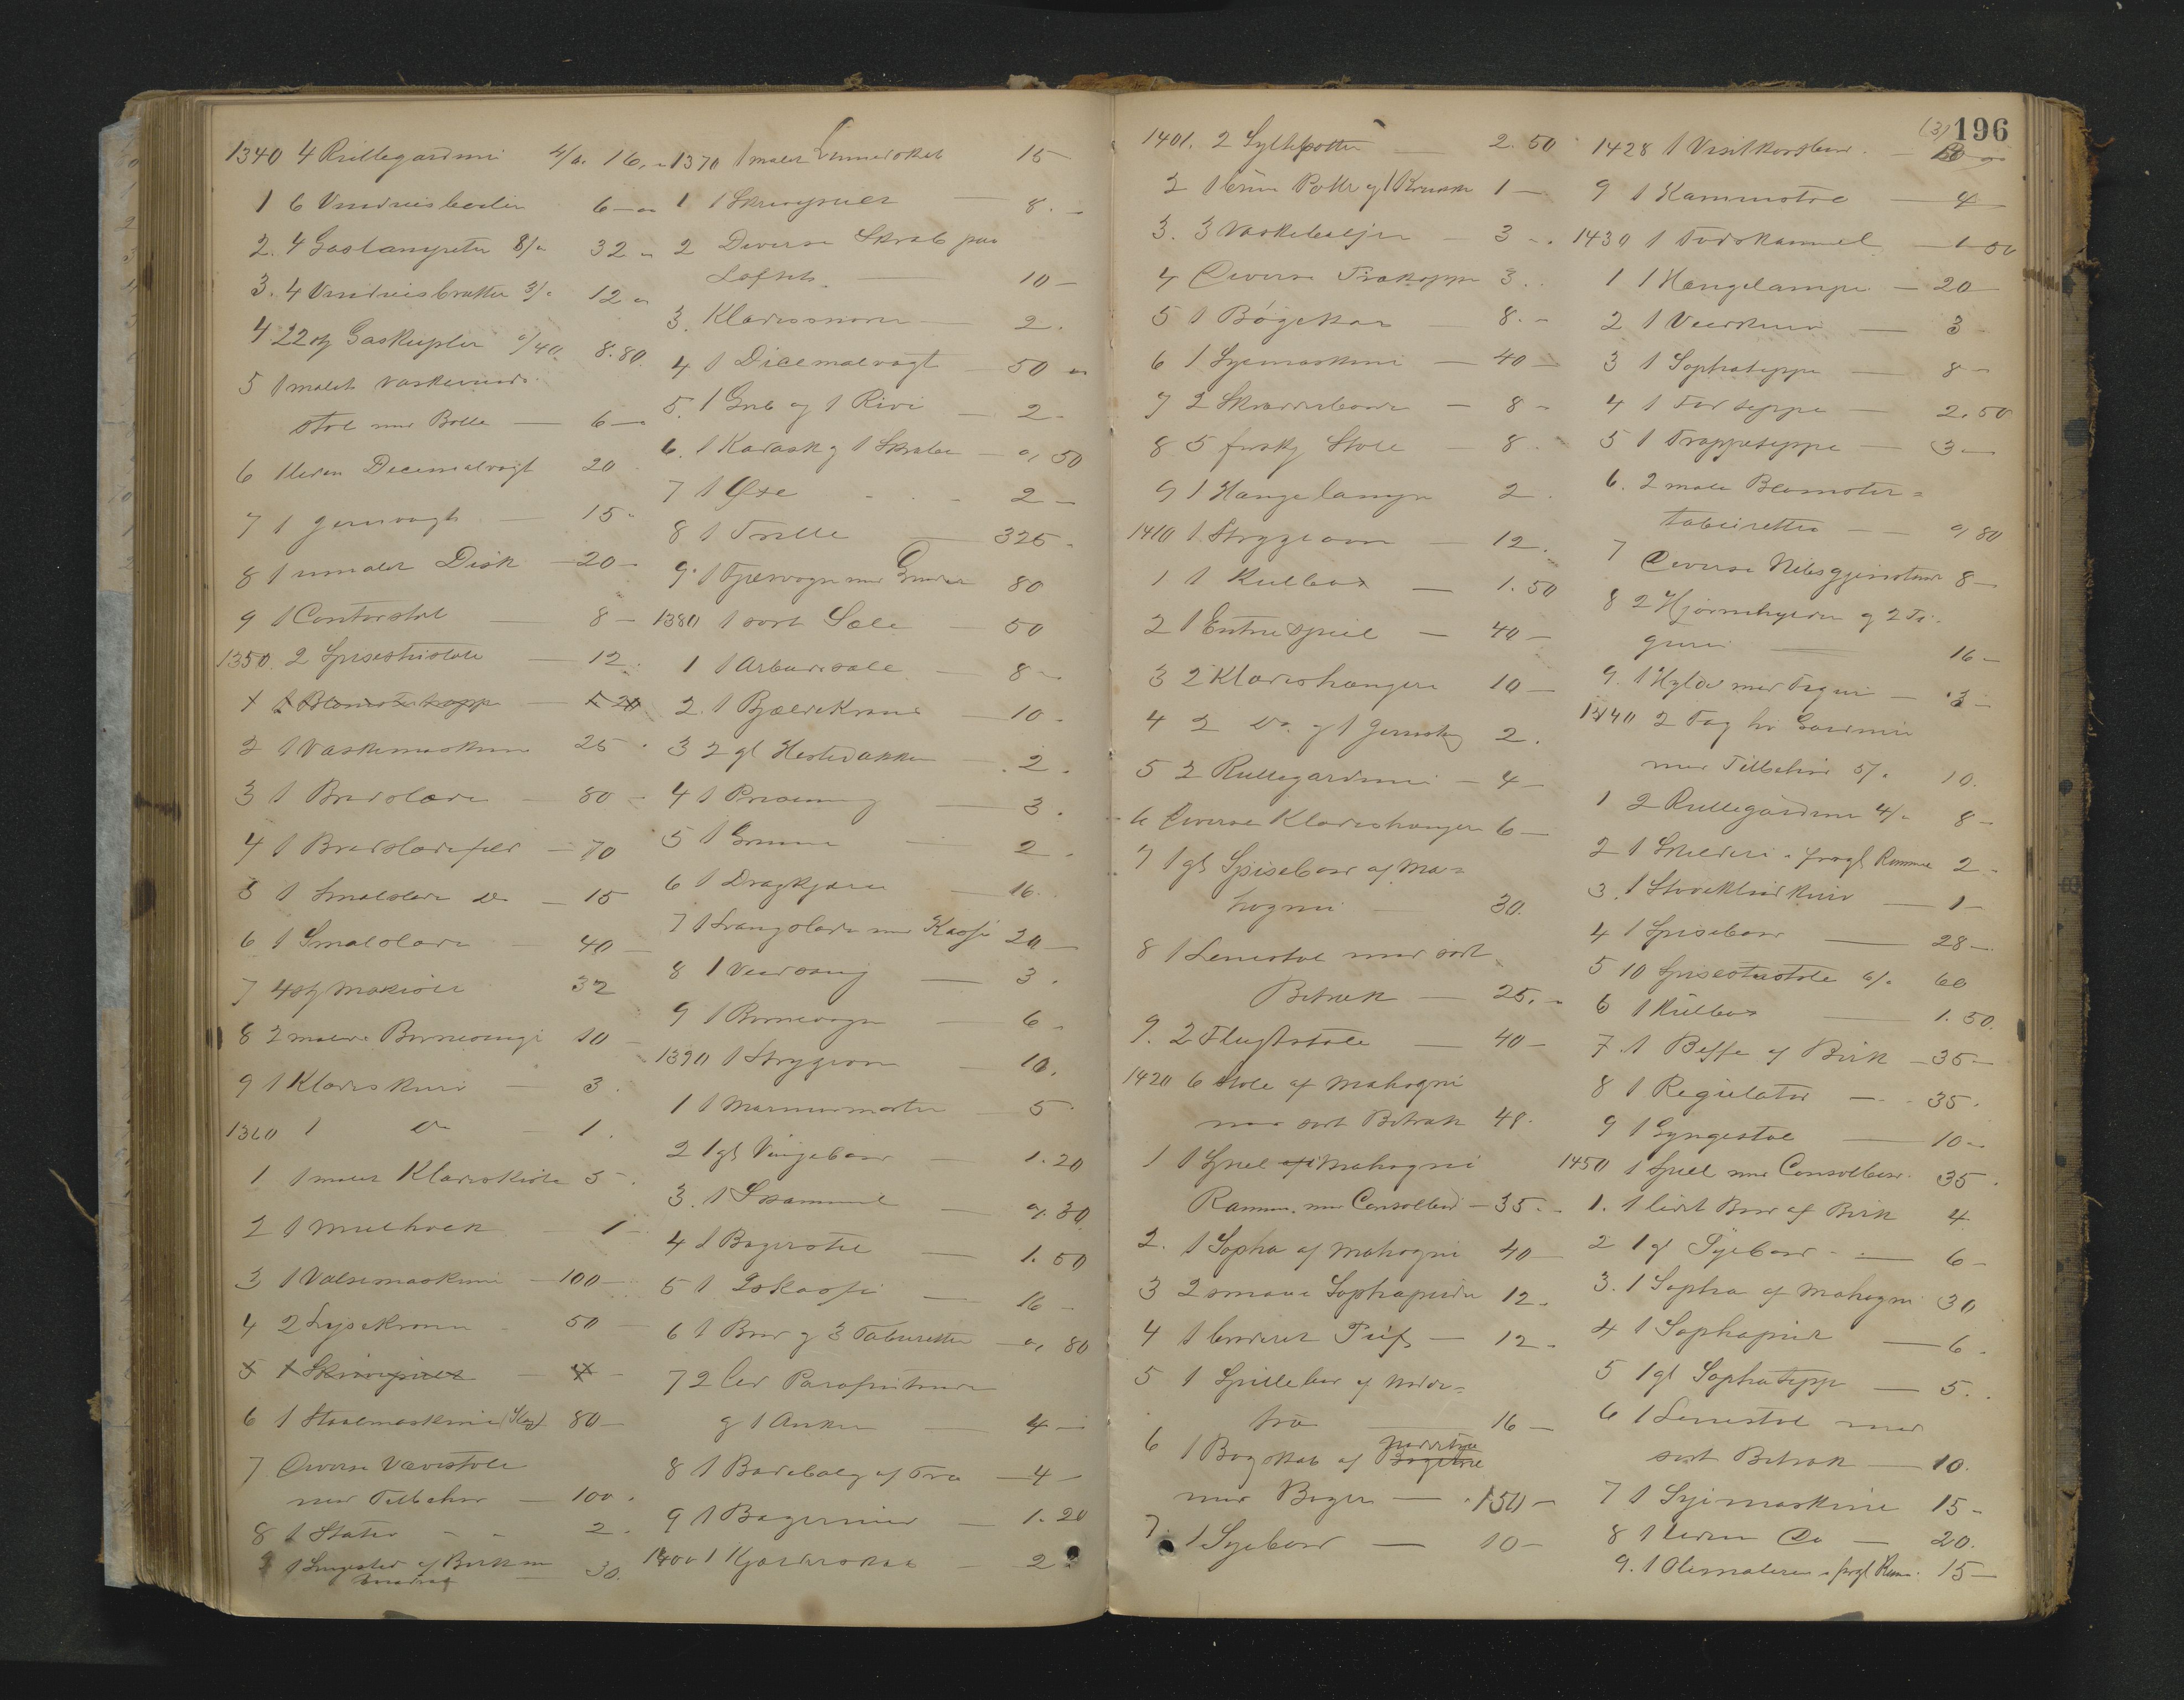 1340 4 Rullegardiner 4/" 16."
1 6 6 — "
2. 4 Gaslampetter 8/" 32 "
3. 4 3/" 12 "
4 22 stz Gaskupler "/40. 8.80.
5 1 malet
stol med Bolle — 6 —
6 1 liden Decimalvægt 20
7 1 Jernvægt — 15 "
8 1 umalet Disk — 20 —
9 1 Contorstol — 8 —
1350. 2 Spisestustole — 12.
1 1 Blomstertrappe — 5 20
2 1 Vaskemaskine 25 .
3 1 Bredslæde — 80 —
4 1 Bredslædefeld — 70
5 1 Smalslæde Do — 15
6 1 Smalslæde — 40 —
7 4 stz 32
8 2 malede Børnesenge 10 —
9 1 Klædeskurv — 3.
1360 1 Do — 1.
1 1 malet Klædeskiste 5 .
2 1 — 1 —
3 1 Valsemaskine — 100 —
4 2 Lysekroner 50 —
5 1 Skrivepult —
6 1 80 —
7 Diverse Vævestole
med Tilbehør — 100 .
8 1 Stativ - - 2 .
9 1 Sengested af Birk m
30.
1370 1 malet Linnedskab 15 —
1 1 Skrivepult — 8. —
2 Diverse Skrab paa
Loftet. — 10 —
3. Klædessnore — 2.
4 1 Decimalvægt — 50 "
5. 1 Greb og 1 Rive — 2 -
6. 1 og 1 Skrabe — ", 50
7 1 Øxe - - - 2 —
8 1 Trille — 325 -
9. 1 med Grinder 80
1380 1 sort Sæle — 50
1 1 Arbeidssæle — 8 —
2. 1 Bjældekrans — 10 .
3 2 gl Hestedækken — 2 .
4 1 — 3 .
5 1 Grime — 2 .
6 1 Dragkjærre — 16.
7 1 Langslæde med Kasse 20 —
8 1 — 3 .
9 1 Børnevogn — 6 -
1390 1 Strygeovn — 10.
1 1 Marmormorter — 5 .
2 1 gl — 1.20
3. 1 — ". 30.
4 1 Bagerstol — 1. 50
5 1 Iskasse — 16 —
6 1 Bord og 3 Taburetter — ", 80
7 2
og 1 Anker — 4 —
8 1 Badebalg af Træ — 4 —
9 1 — 1. 20
1400 1 — 2 .
(3) 196
1401. 2 Syltepotter — 2. 50
2 Potte og 1 Krukke 1 —
3. 3 Vaskebaljer — 3 - .
4 Diverse Trækopper 3 . .
5 1 Bøgekar — 8. —
6 1 Syemaskine — 40 —
7 2 Skrædderborde — 8 —
8 5 forskj Stole — 8 .
9 1 Hængelampe 2 .
1410 1 Strygeovn — 12.
1 1 Kulbox — 1. 50
2 1 Entrespeil — 40 —
3 2 Klædeshængere 10 —
4 2 Do og 1 2 .
5 2 Rullegardiner — 4 —
6 Diverse Klædeshænger 6 —
7 1 gl Spisebord af Ma=
hogni — 30.
8 1 Lænestol med sort
Betræk — 25. -
9. 2 Flugtstole — 40 —
1420 6 Stole af Mahogni
med sort Betræk 48.
1 1 Speil af i Mahogni
Ramme. med Consolbord — 35 - .
2. 1 Sopha af Mahogni 40 —
3 2 smaae Sophapuder 12 .
4 1 broderet Puf — 12 .
5 1 Spillebord af Nødde=
træ — 16 —
6 1 Bogskab af Bøgetræ nøddetræ
med Bøger — 150 —
7. 1 Syebord — 10 —
1428 1 Visitkortbord. —
9 1 Kaminstol — 4 —
1430 1 Fodskammel — 1 50
1 1 Hængelampe — 20
2 1 — 3 -
3 1 Sophateppe — 8 —
4 1 Fodteppe — 2. 50
5 1 Trappeteppe — 3 —
6. 2 malede Blomster=
tabouretter — ", 80
7 Diverse Nipsgjenstande 8 —
8 2 Hjørnehylder og 2 Fi-
gurer — 16 —
9. 1 Hylde med Figur — 3 —
1440 2 Fag hv Gardiner
med Tilbehør 5/" 10.
1 2 Rullegardiner 4/" 8 —
2 1 Skilderi i forgl Ramme 2 -
3. 1 Stoveklud kurv — 1 —
4 1 Spisebord — 28 —
5 10 Spisestustole 6/" 60
6 1 Kulbox — 1. 50.
7 . 1 Buffe af Birk — 35 —
8 1 Regulator — . 35 .
9 1 Gyngestol — 10 —
1450 1 Speil med Consolbord. 35 .
1. 1 lidet Bord af Birk 4.
2 1 gl Syebord - — 6 -
3. 1 Sopha af Mahogni 30
4 1 Sophapude — 6 .
5 1 gl Sophateppe — 5. .
6 1 Lænestol med
sort Betræk — 10.
7 1 Syemaskine 15 -
8 1 liden Do — 20.
9. 1 Oliemaleri i forgl Ram. 15 —